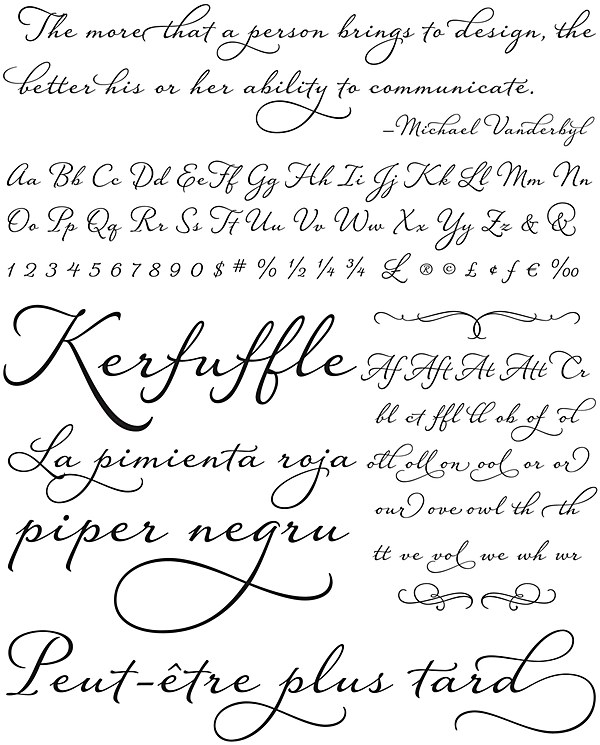 The more that a person brings to design, the
better his or her ability to communicate.
–Michael Vanderbyl
Aa Bb Cc Dd Ee Ff Gg Hh Ii Jj Kk Ll Mm Nn
Oo Pp Qq Rr Ss Tt Uu Vv Ww Xx Yy Zz & &
1 2 3 4 5 6 7 8 9 0 $ # % ½ ¼ ¾ £ ® © £ ¢ ƒ € ‰
Kerfuffle
La pimienta roja
piper negru
Af Aft At Att Cr
bl ct ffl ll ob of ol
oll oll on ool or or
our ove owl th th
tt ve vol we wh wr
Peut-être plus tard